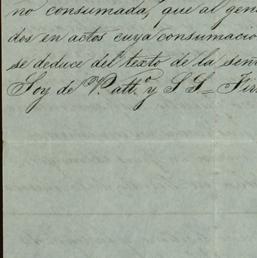 no consumada, que al gen
dos en actos cuya consumacio
se deduce del texto de la sen
Soy de V. att.º y S S = Fir